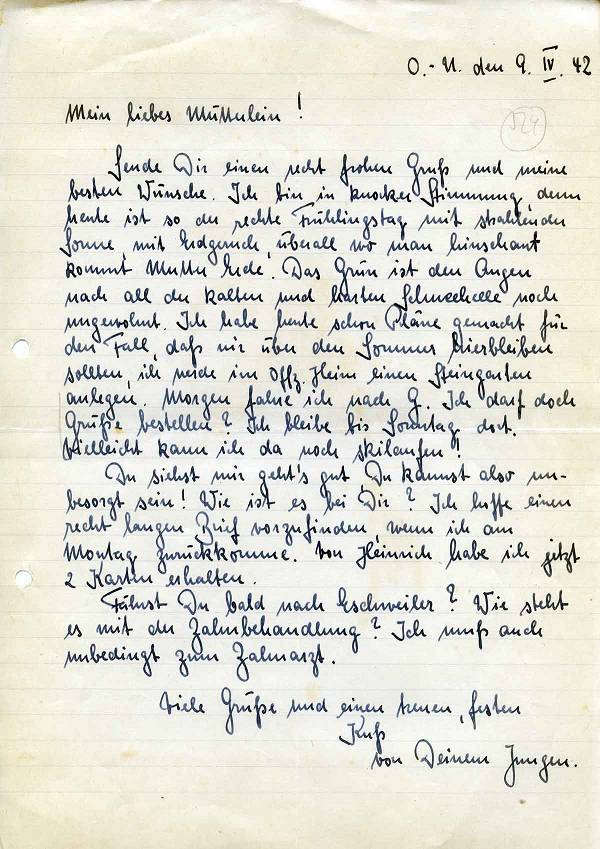 O.-U. den 9. IV. 42
Mein liebes Muttulein!
524
Sende Dir einen recht frohen Gruß und meine
besten Wünsche. Ich bin in knocker Stimmung, denn
heute ist so der rechte Frühlingstag mit strahlender
Sonne, mit Erdgeruch, überall wo man hinschaut
kommt Mutter Erde. Das Grün ist den Augen
nach all der kalten und harten Schneehelle noch
ungewohnt. Ich habe heute schon Pläne gemacht für
den Fall, daß wir über den Sommer hierbleiben
sollten, ich werde im Offz. Heim einen Steingarten
anlegen. Morgen fahre ich nach G. Ich darf doch
Grüße bestellen? Ich bleibe bis Sonntag dort.
Vielleicht kann ich da noch skilaufen!
Du siehst mir geht's gut, Du kannst also un-
besorgt sein! Wie ist es bei Dir? Ich hoffe einen
recht langen Brief vorzufinden, wenn ich am
Montag zurückkomme. Von Heinrich habe ich jetzt
2 Karten erhalten.
Fährst Du bald nach Eschweiler? Wie steht
es mit der Zahnbehandlung? Ich muß auch
unbedingt zum Zahnarzt.
Viele Grüße und einen treuen, festen
Kuß
von Deinem Jungen.